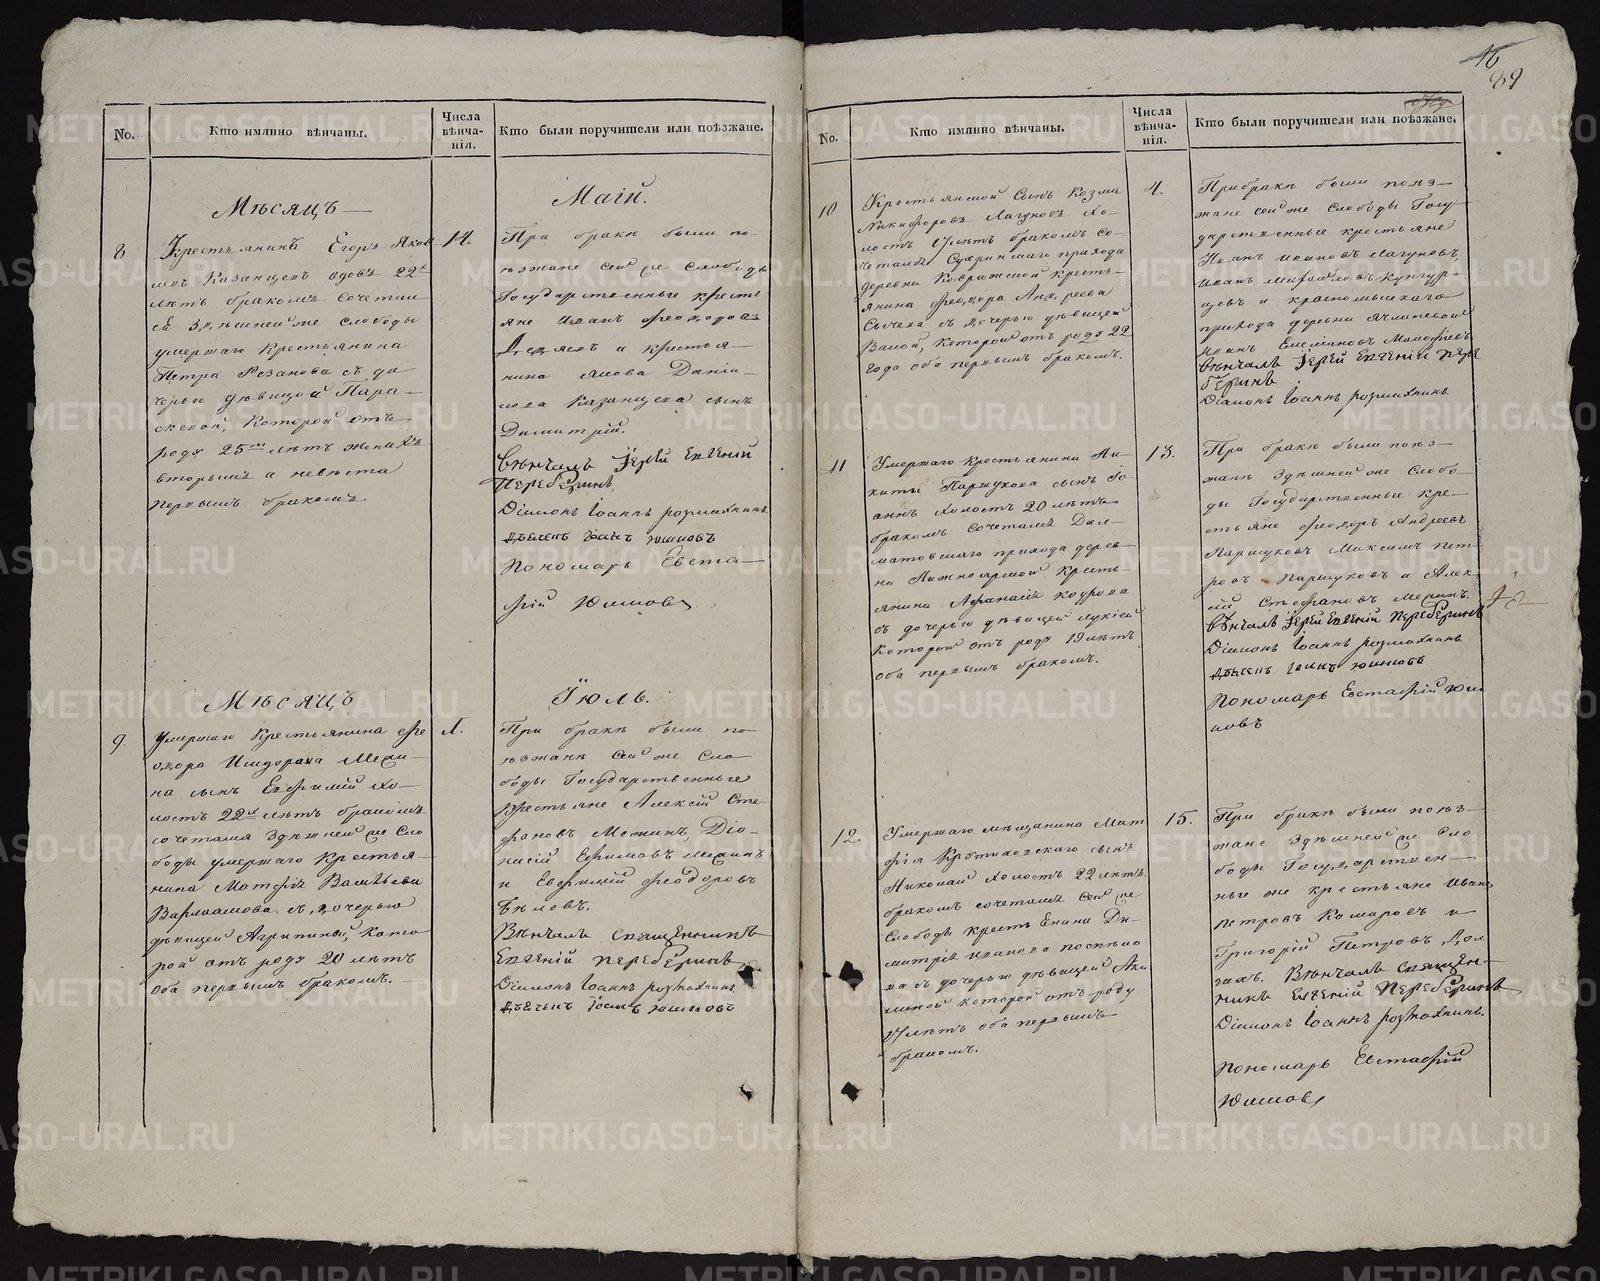 No.
Кто имянно вѣнчаны.
Числа
вѣнча-
нія.
Кто были поручители или поѣзжане.
Мѣсяцъ
Маій.
8
Крестьянинъ Егоръ Яков
левъ Казанцевъ вдовъ 22хъ
лѣтъ бракомъ сочетал
ся здѣшней же слободы
умершаго крестьянина
Петра Резанова съ до
черью дѣвицей Пара-
скевой, которой отъ
роду 25ти лѣтъ женихъ
вторымъ а невѣста
первымъ бракомъ.
14.
При бракѣ были по-
ѣзжане сей же слободы
Государственные кресть
яне Иванъ Феодоровъ
и крестья-
нина Якова Даніи-
лова Казанцева сынъ
Димитрій.
Вѣнчалъ Іерей Евгеній
Переберинъ
Діаконъ Іоаннъ
Дьячекъ Іоаннъ Юшковъ
Пономарь Евста-
фій Юшковъ
Мѣсяцъ
Іюль.
9.
Умершаго крестьянина Фе
одора Исидорова
на сынъ Евфимій хо-
лостъ 22хъ лѣтъ бракомъ
сочетался здѣшней же сло
боды умершаго крестья-
нина Матфія Васильева
Варлаамова съ дочерью
дѣвицей Агрипиной, кото
рой отъ роду 20 лѣтъ
оба первымъ бракомъ.
1.
При бракѣ были по
ѣзжане сей же сло
боды Государственные
крестьяне Алексій Сте-
фановъ Діо-
нисій Ефимовъ
и Евфимій Феодоровъ
Бѣловъ.
Вѣнчалъ священникъ
Евгеній Переберинъ
Діаконъ Іоаннъ
Дьячекъ Іоаннъ Юшковъ
89
No.
Кто имянно вѣнчаны.
Числа
вѣнча-
нія.
Кто были поручители или поѣзжане.
10
Крестьянской сынъ Козма
Никифоровъ Лагуновъ хо-
лостъ 17 лѣтъ бракомъ со-
четался прихода
деревни кресть-
янина Феодора Андреева
Сычева съ дочерью дѣвицей
которой отъ роду 22
года оба первымъ бракомъ.
4.
При бракѣ были поѣз-
жане сей же слободы Госу
дарственные крестьяне
Иванъ Ивановъ Лагуновъ,
Иванъ Михайловъ Кунгур-
цевъ и
прихода деревни
Вѣнчалъ Іерей Евгеній Пере
беринъ
Діаконъ Іоаннъ
11
Умершаго крестьянина Ни-
киты Паршукова сынъ Іо-
аннъ холостъ 20 лѣтъ
бракомъ сочетался Дал-
матовскаго прихода дерев-
ни кресть-
янина Афанасія
съ дочерью дѣвицей Лукіей
которой отъ роду 19 лѣтъ
оба первымъ бракомъ.
13.
При бракѣ были поѣз-
жане здѣшней же слобо-
ды Государственные кре-
стьяне Феодоръ Андреевъ
Паршуковъ Максимъ Пет-
ровъ Паршуковъ и Алек-
сій Стефановъ
Вѣнчалъ Іерей Евгеній Переберинъ
Діаконъ Іоаннъ
Дьячекъ Іоаннъ Юшковъ
Пономарь Евстафій Юш
ковъ
12.
Умершаго мѣщанина Мат
фія сынъ
Николай холостъ 22 лѣтъ
бракомъ сочетался сей же
слободы крестьянина Ди-
митрія Иванова
съ дочерью дѣвицей Аки
линой которой отъ роду
17 лѣтъ оба первымъ
бракомъ.
15.
При бракѣ были поѣз-
жане здѣшней же сло
боды Государствен-
ные же крестьяне Иванъ
Петровъ Комаровъ и
Григорій Петровъ
Вѣнчалъ священ-
никъ Евгеній Переберинъ
Діаконъ Іоаннъ
Пономарь Евстафій
Юшковъ
METRIKI.GASO-URAL.RU